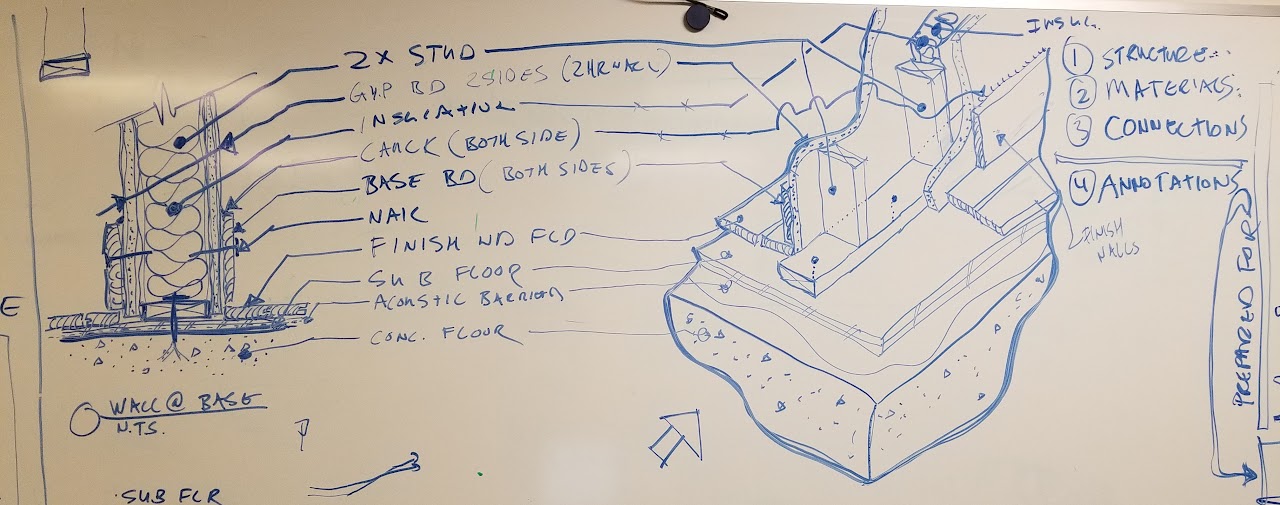 2X STUD
GYP BD 2SIDES (2HR WALL)
INSULATION
CAULK (BOTH SIDE)
BASE BD (BOTH SIDES)
NAIL
FINISH WD FLD
SUB FLOOR
ACOUSTIC BARRIER
CONC. FLOOR
WALL @ BASE
N.T.S.
SUB FLR
E
INSUL.
1 STRUCTURE
2 MATERIALS:
3 CONNECTIONS
4 ANNOTATIONS
FINISH
WALLS
PREPARED FOR